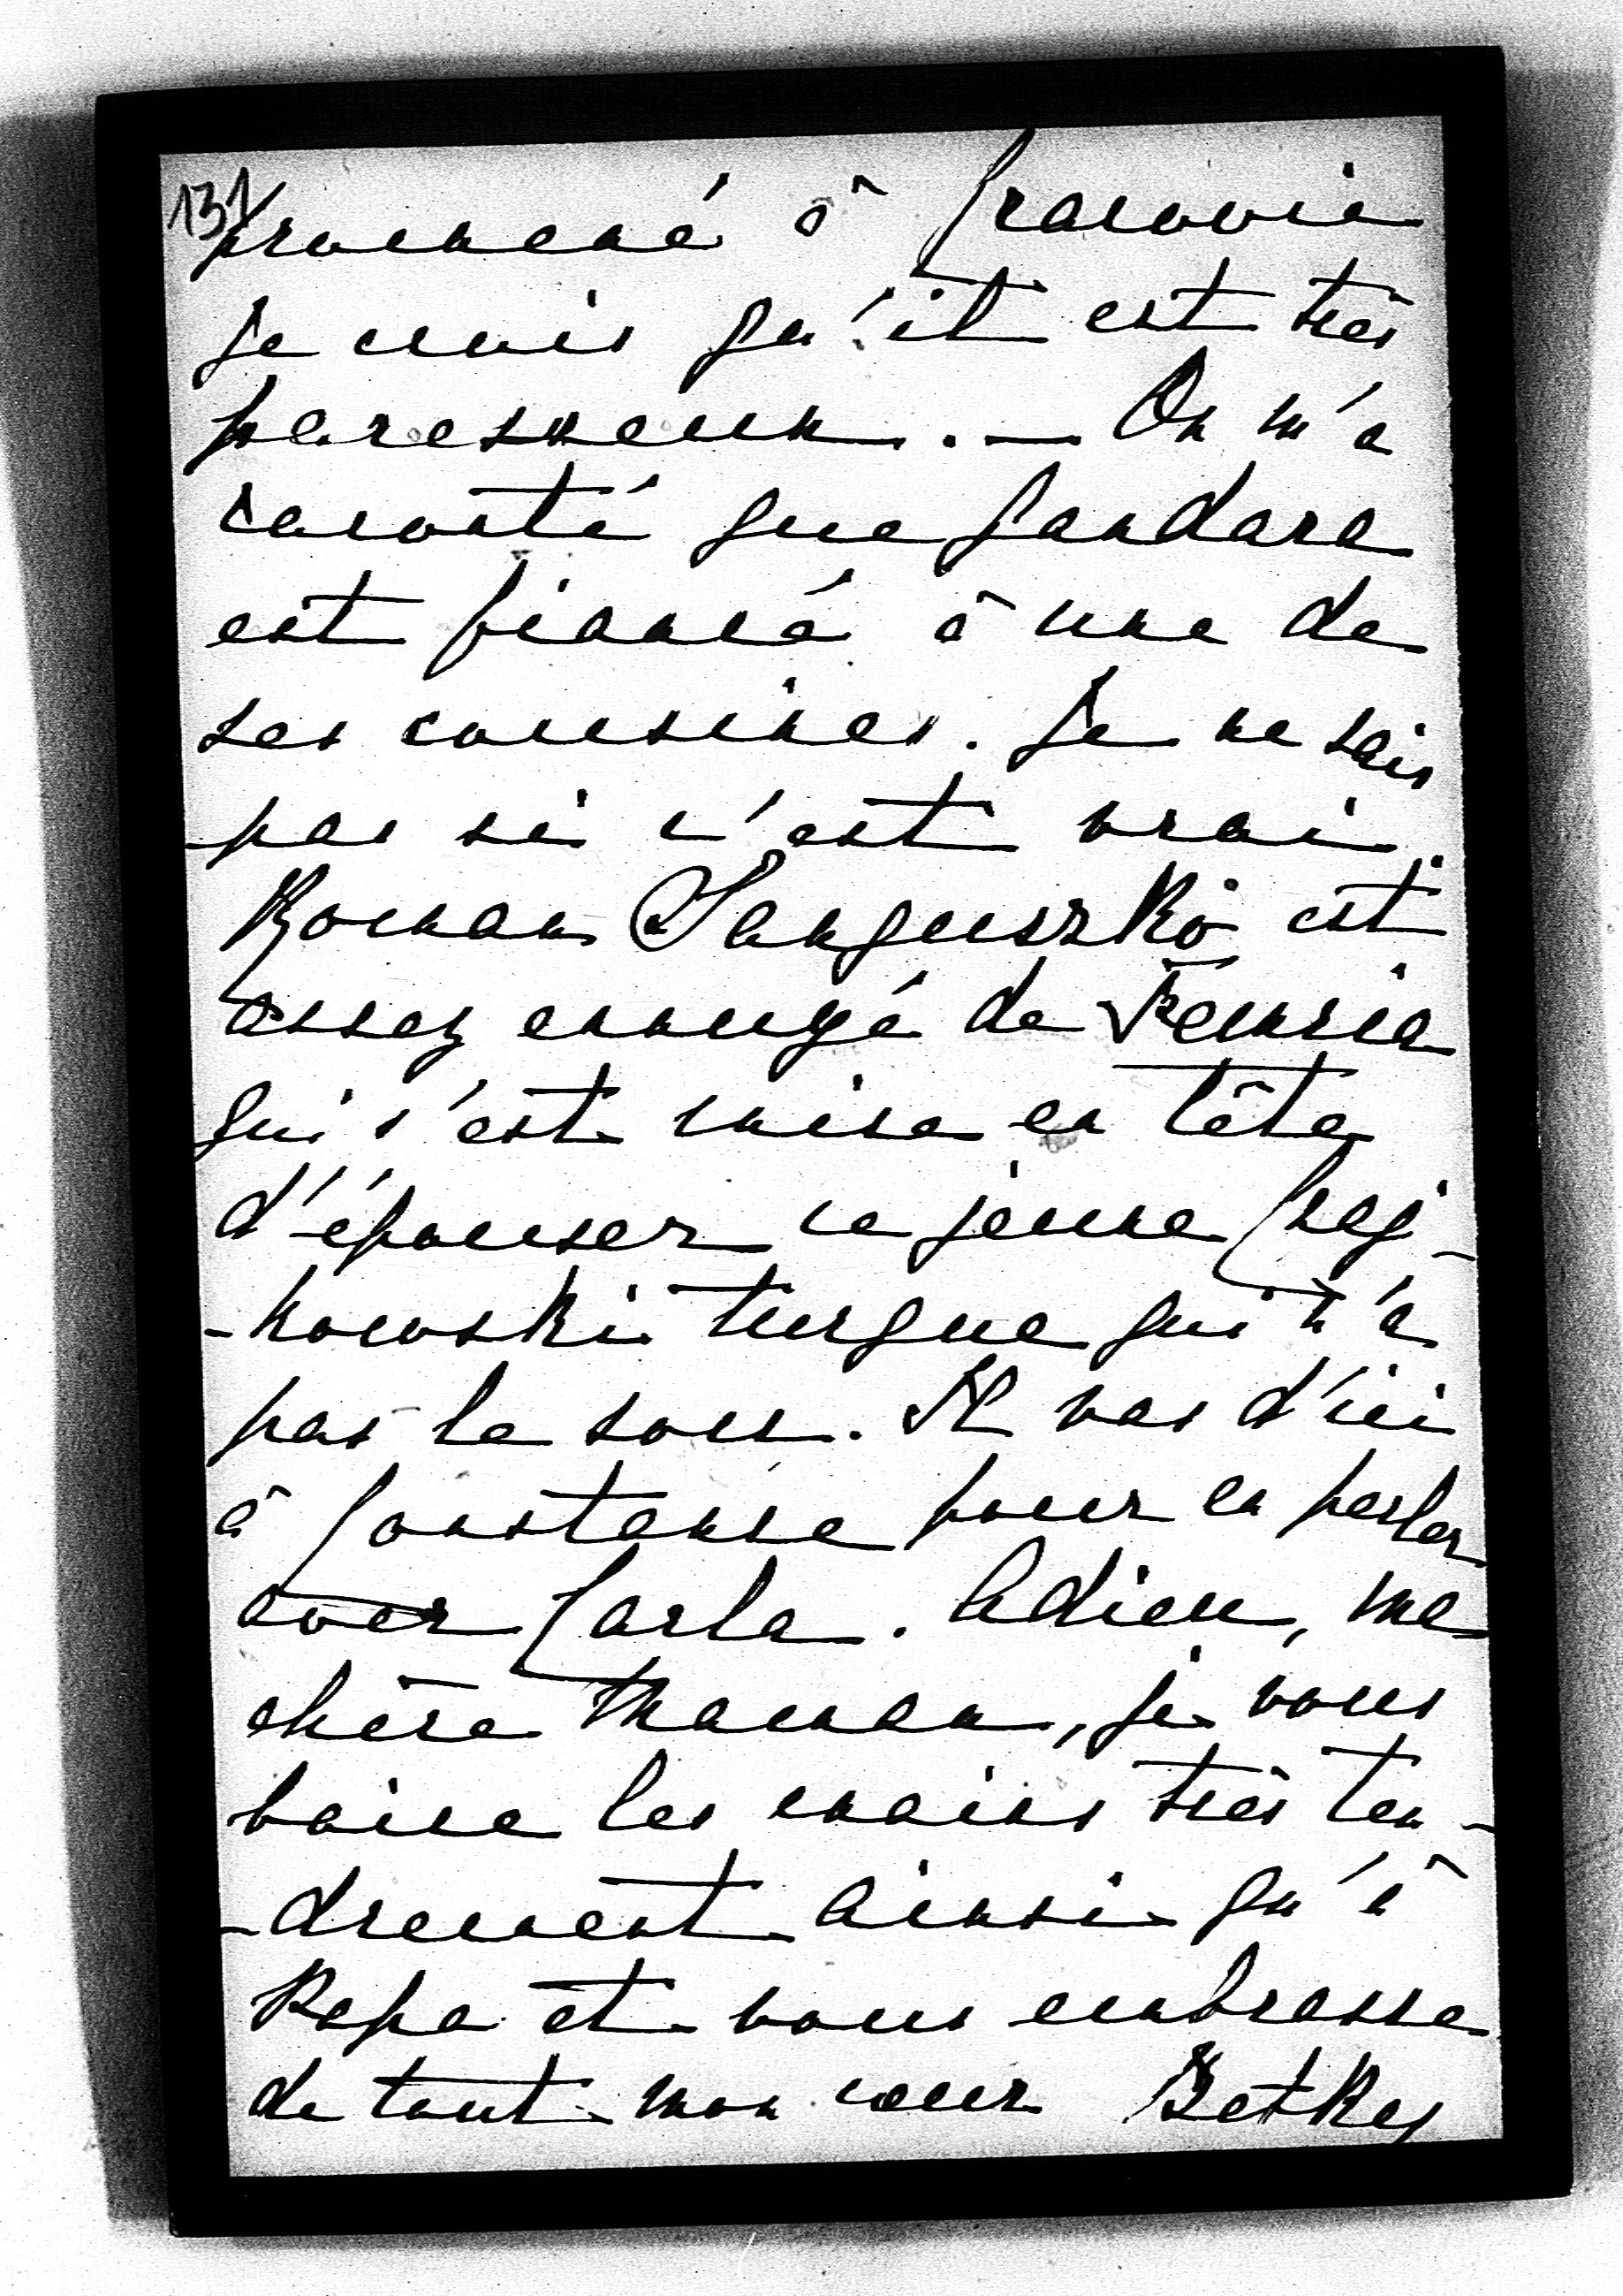 131/
promené à Cracovie
je crois qu'il est très
paresseux. — On m'a
raconté que Gandara
est fiancé à une de
ses cousines. Je ne sais
pas si c'est vrai.
Roman Sanguszko est
assez ennuyé de
qui s'est mise en tête
d'épouser ce jeune Czaj-
-kowski turque qui n'a
pas le sou. Il vas d'ici
à Constance pour en parler
avec Carla. Adieu, ma
chère Maman, je vous
baise les mains très ten-
-drement ainsi qu'à
Papa et vous embrasse
de tout mon cœur Betka